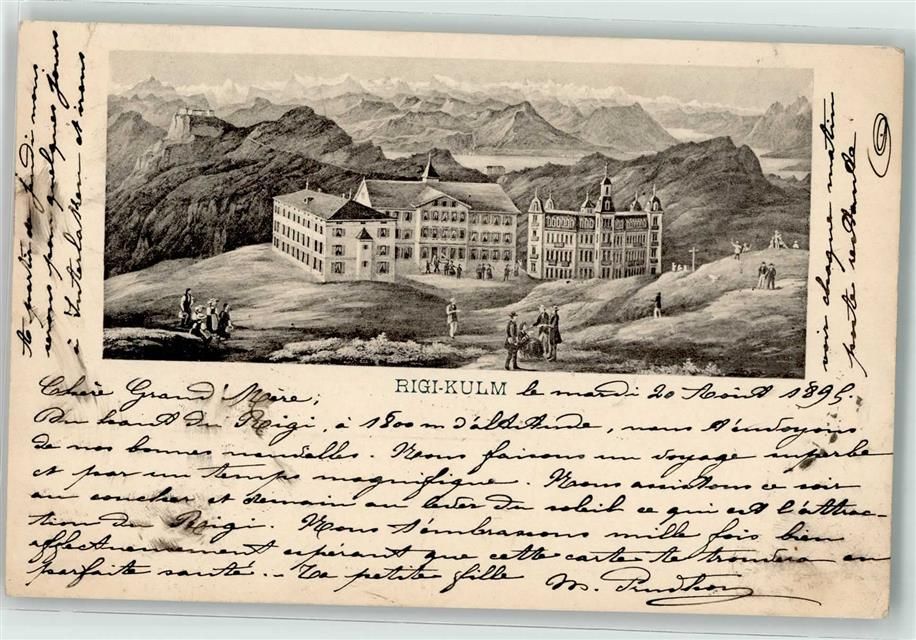 RIGI-KULM le mardi 20 Août 1895.
Chère Grand'Mère;
Du haut du Rigi, à 1800 m d'altitude, nous t'envoyons
de nos bonnes nouvelles. Nous faisons un voyage superbe
et par un temps magnifique. Nous assistons ce soir
au coucher et demain au lever du soleil ce qui est l'attrac-
tion du Rigi. Nous t'embrassons mille fois bien
affectueusement espérant que cette carte te trouvera en
parfaite santé. - Ta petite fille M. Prudhon
à partir de jeudi nous
serons pour quelques jours
à Interlaken et nous
voir chaque matin
poste restante